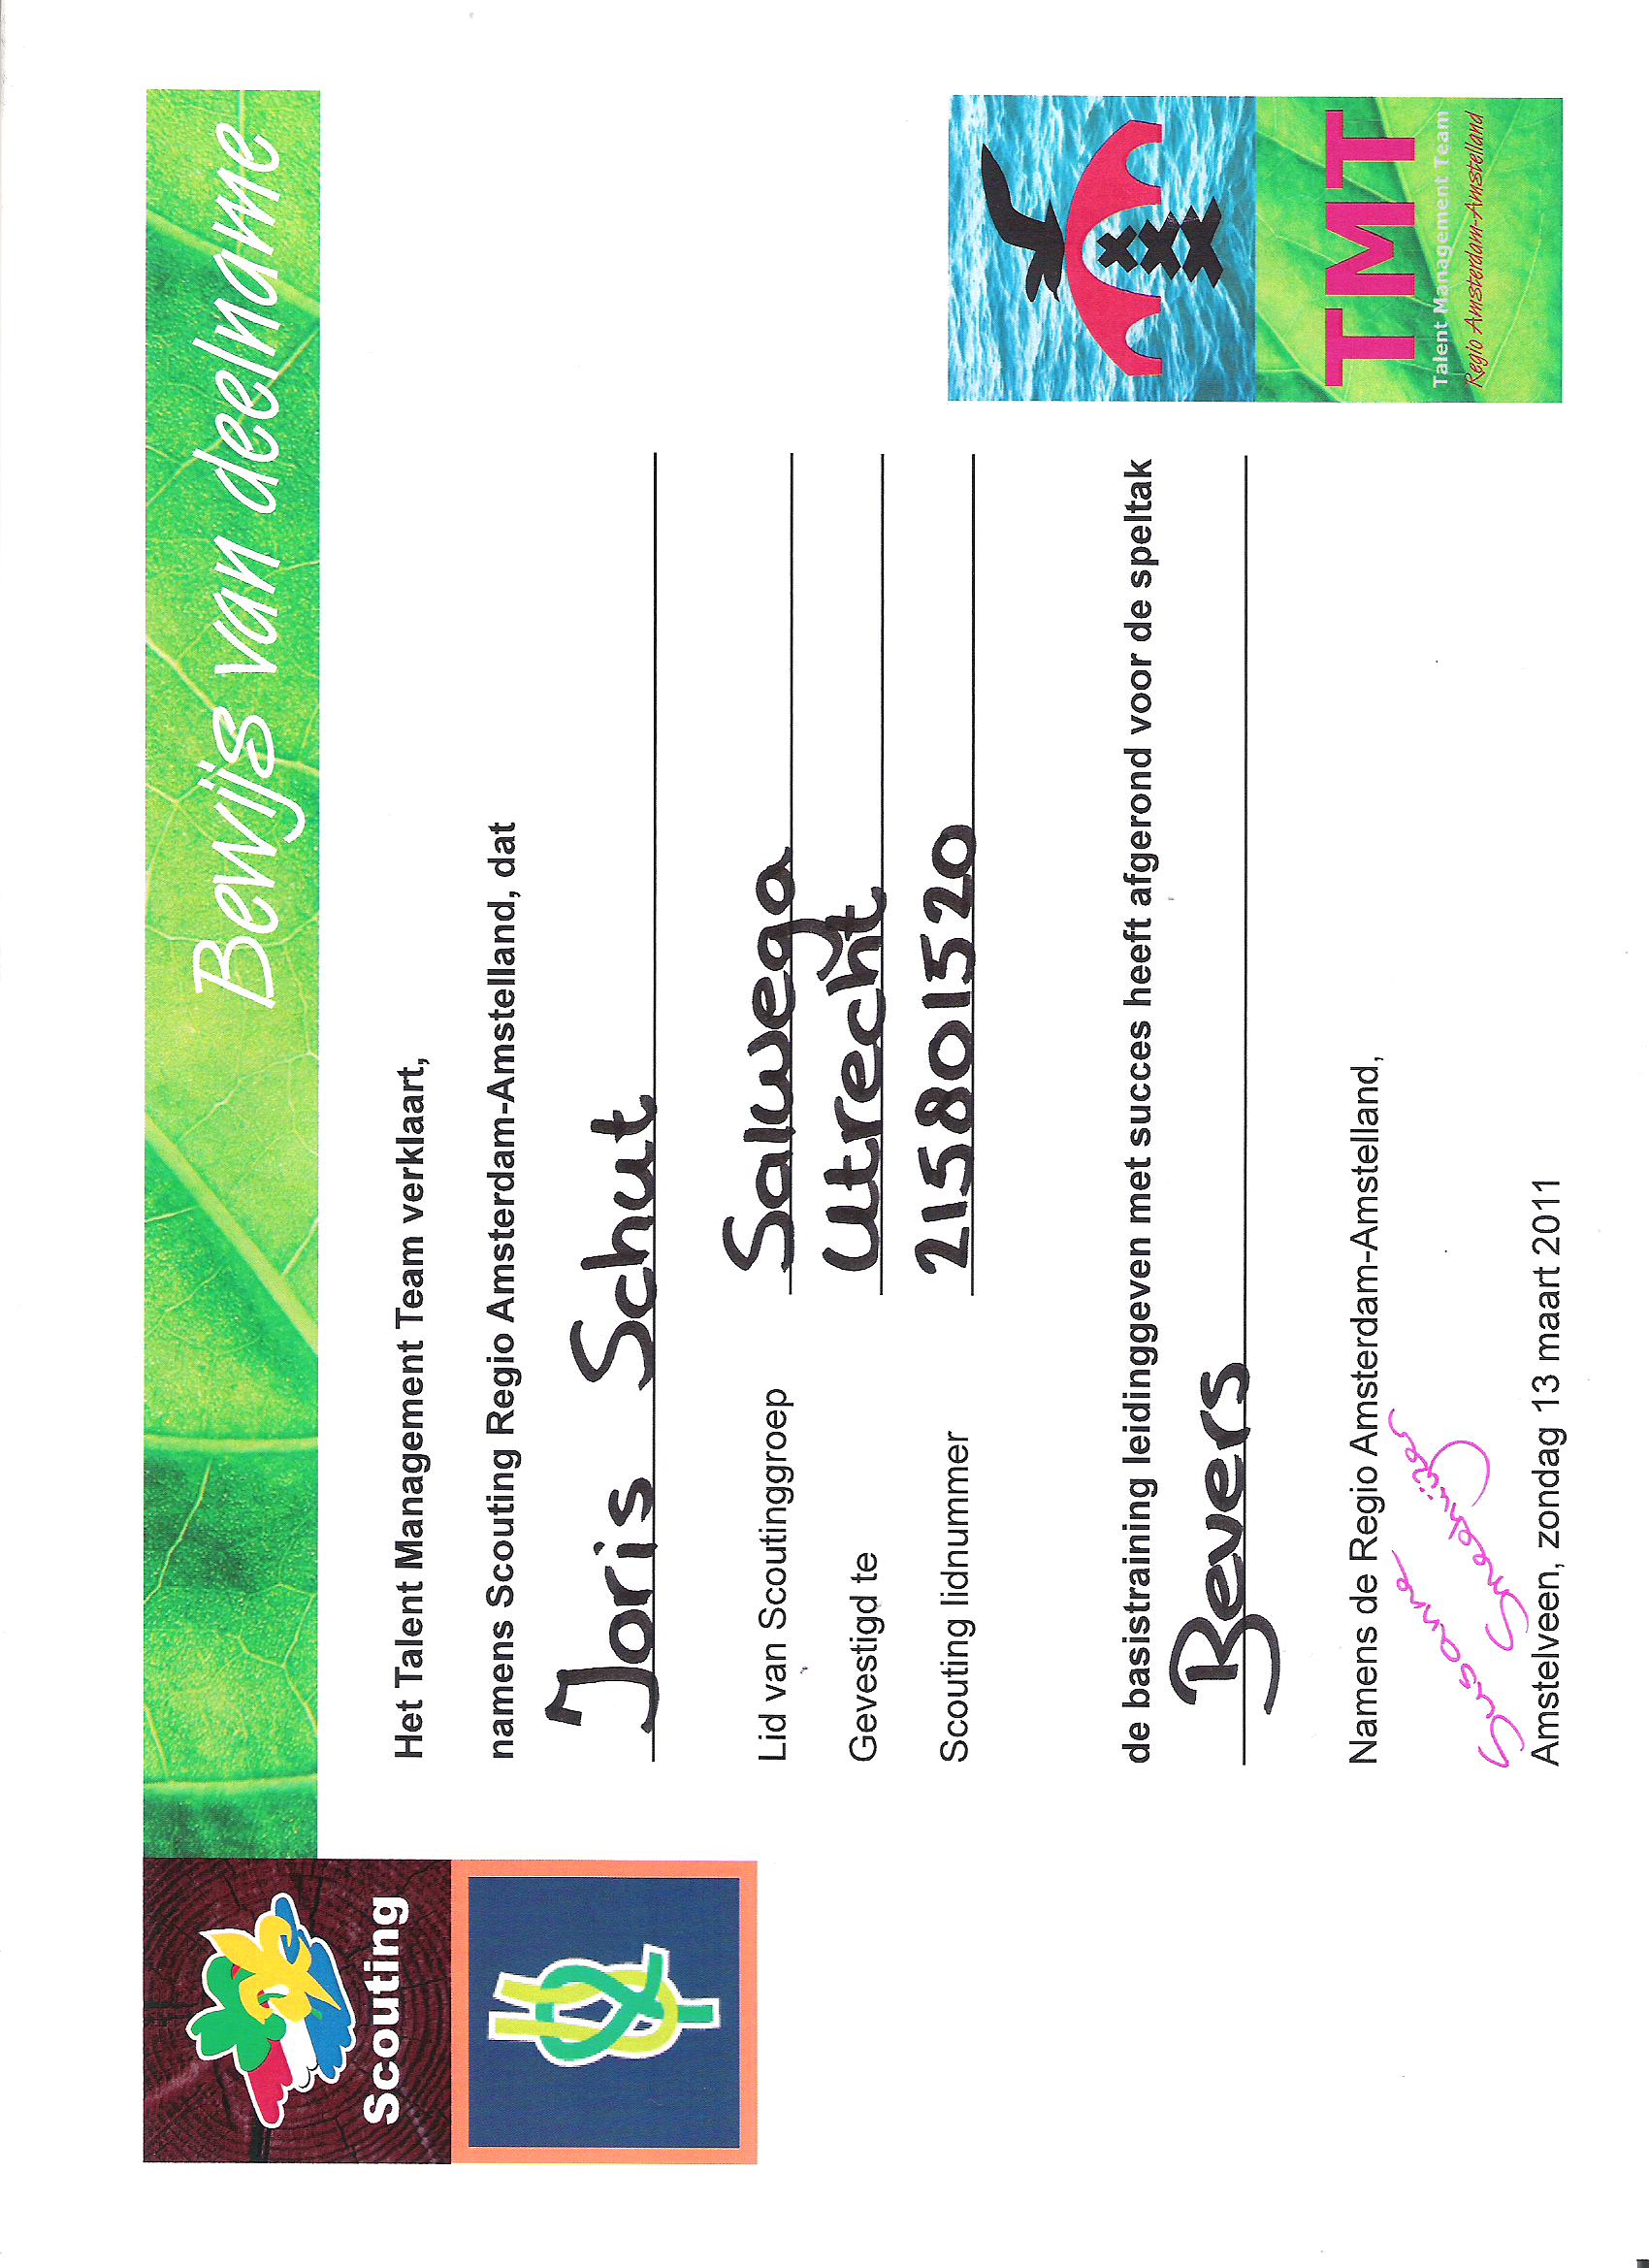 Bewijs van deelname
Scouting
Het Talent Management Team verklaart,
namens Scouting Regio Amsterdam-Amstelland, dat
Joris Schut
Lid van Scoutinggroep Salwega
Gevestigd te Utrecht
Scouting lidnummer 215801520
de basistraining leidinggeven met succes heeft afgerond voor de speltak
Bevers
Namens de Regio Amsterdam-Amstelland,
Susanne
Amstelveen, zondag 13 maart 2011
TMT
Talent Management Team
Regio Amsterdam-Amstelland